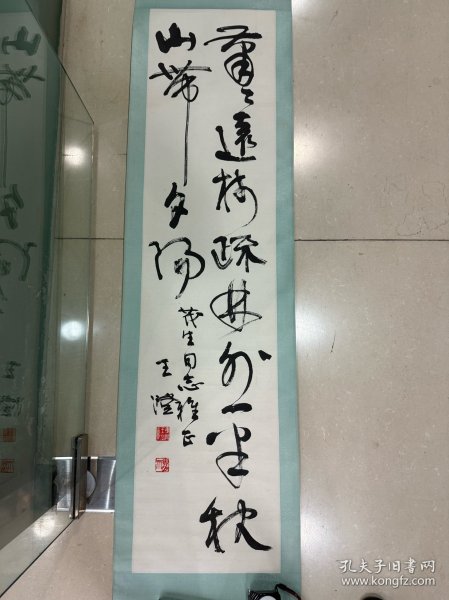 蕭々遠樹疎林外一半秋
山帶夕陽
茂生同志雅正
王澄
孔夫子旧书网
www.kongfz.com